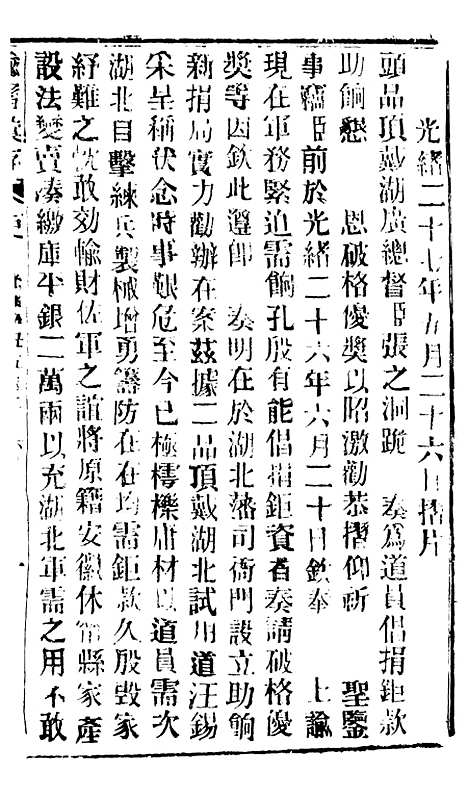 光緒二十七年九月二十六日摺片
頭品頂戴湖廣總督臣張之洞跪　奏爲道員倡捐鉅款
助餉懇　恩破格優奬以昭激勸恭摺仰祈　聖鑒
事竊臣前於光緒二十六年六月二十日欽奉　上諭
現在軍務緊迫需餉孔殷有能倡捐鉅資者奏請破格優
奬等因欽此遵卽　奏明在於湖北藩司衙門設立助餉
新捐局實力勸辦在案茲據二品頂戴湖北試用道汪錫
釆呈稱伏念時事艱危至今已極樗櫟庸材以道員需次
湖北目擊練兵製械增勇籌防在在均需鉅款久殷毀家
紓難之忱敢効輸財佐軍之誼將原籍安徽休甯縣家產
設法變賣湊繳庫平銀二萬兩以充湖北軍需之用不敢